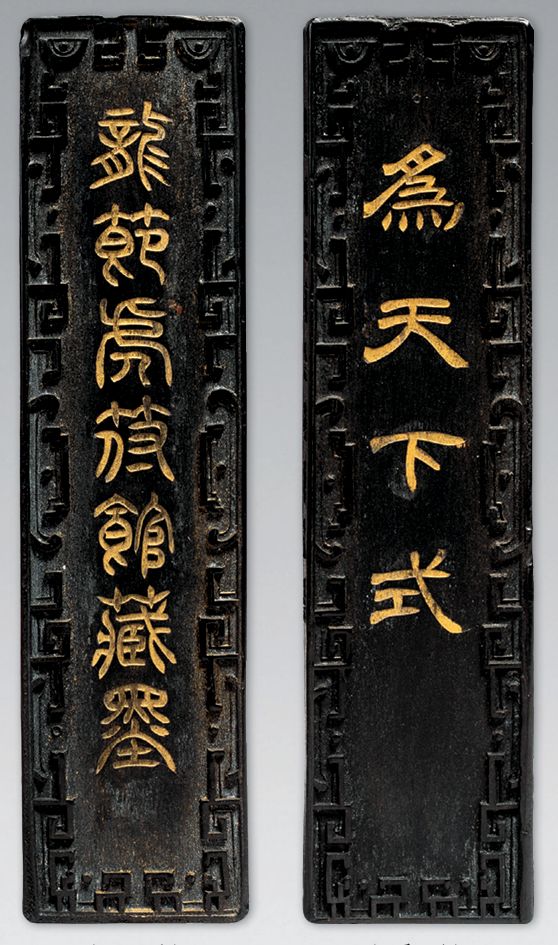 龍節虎符館藏墨
為天下式